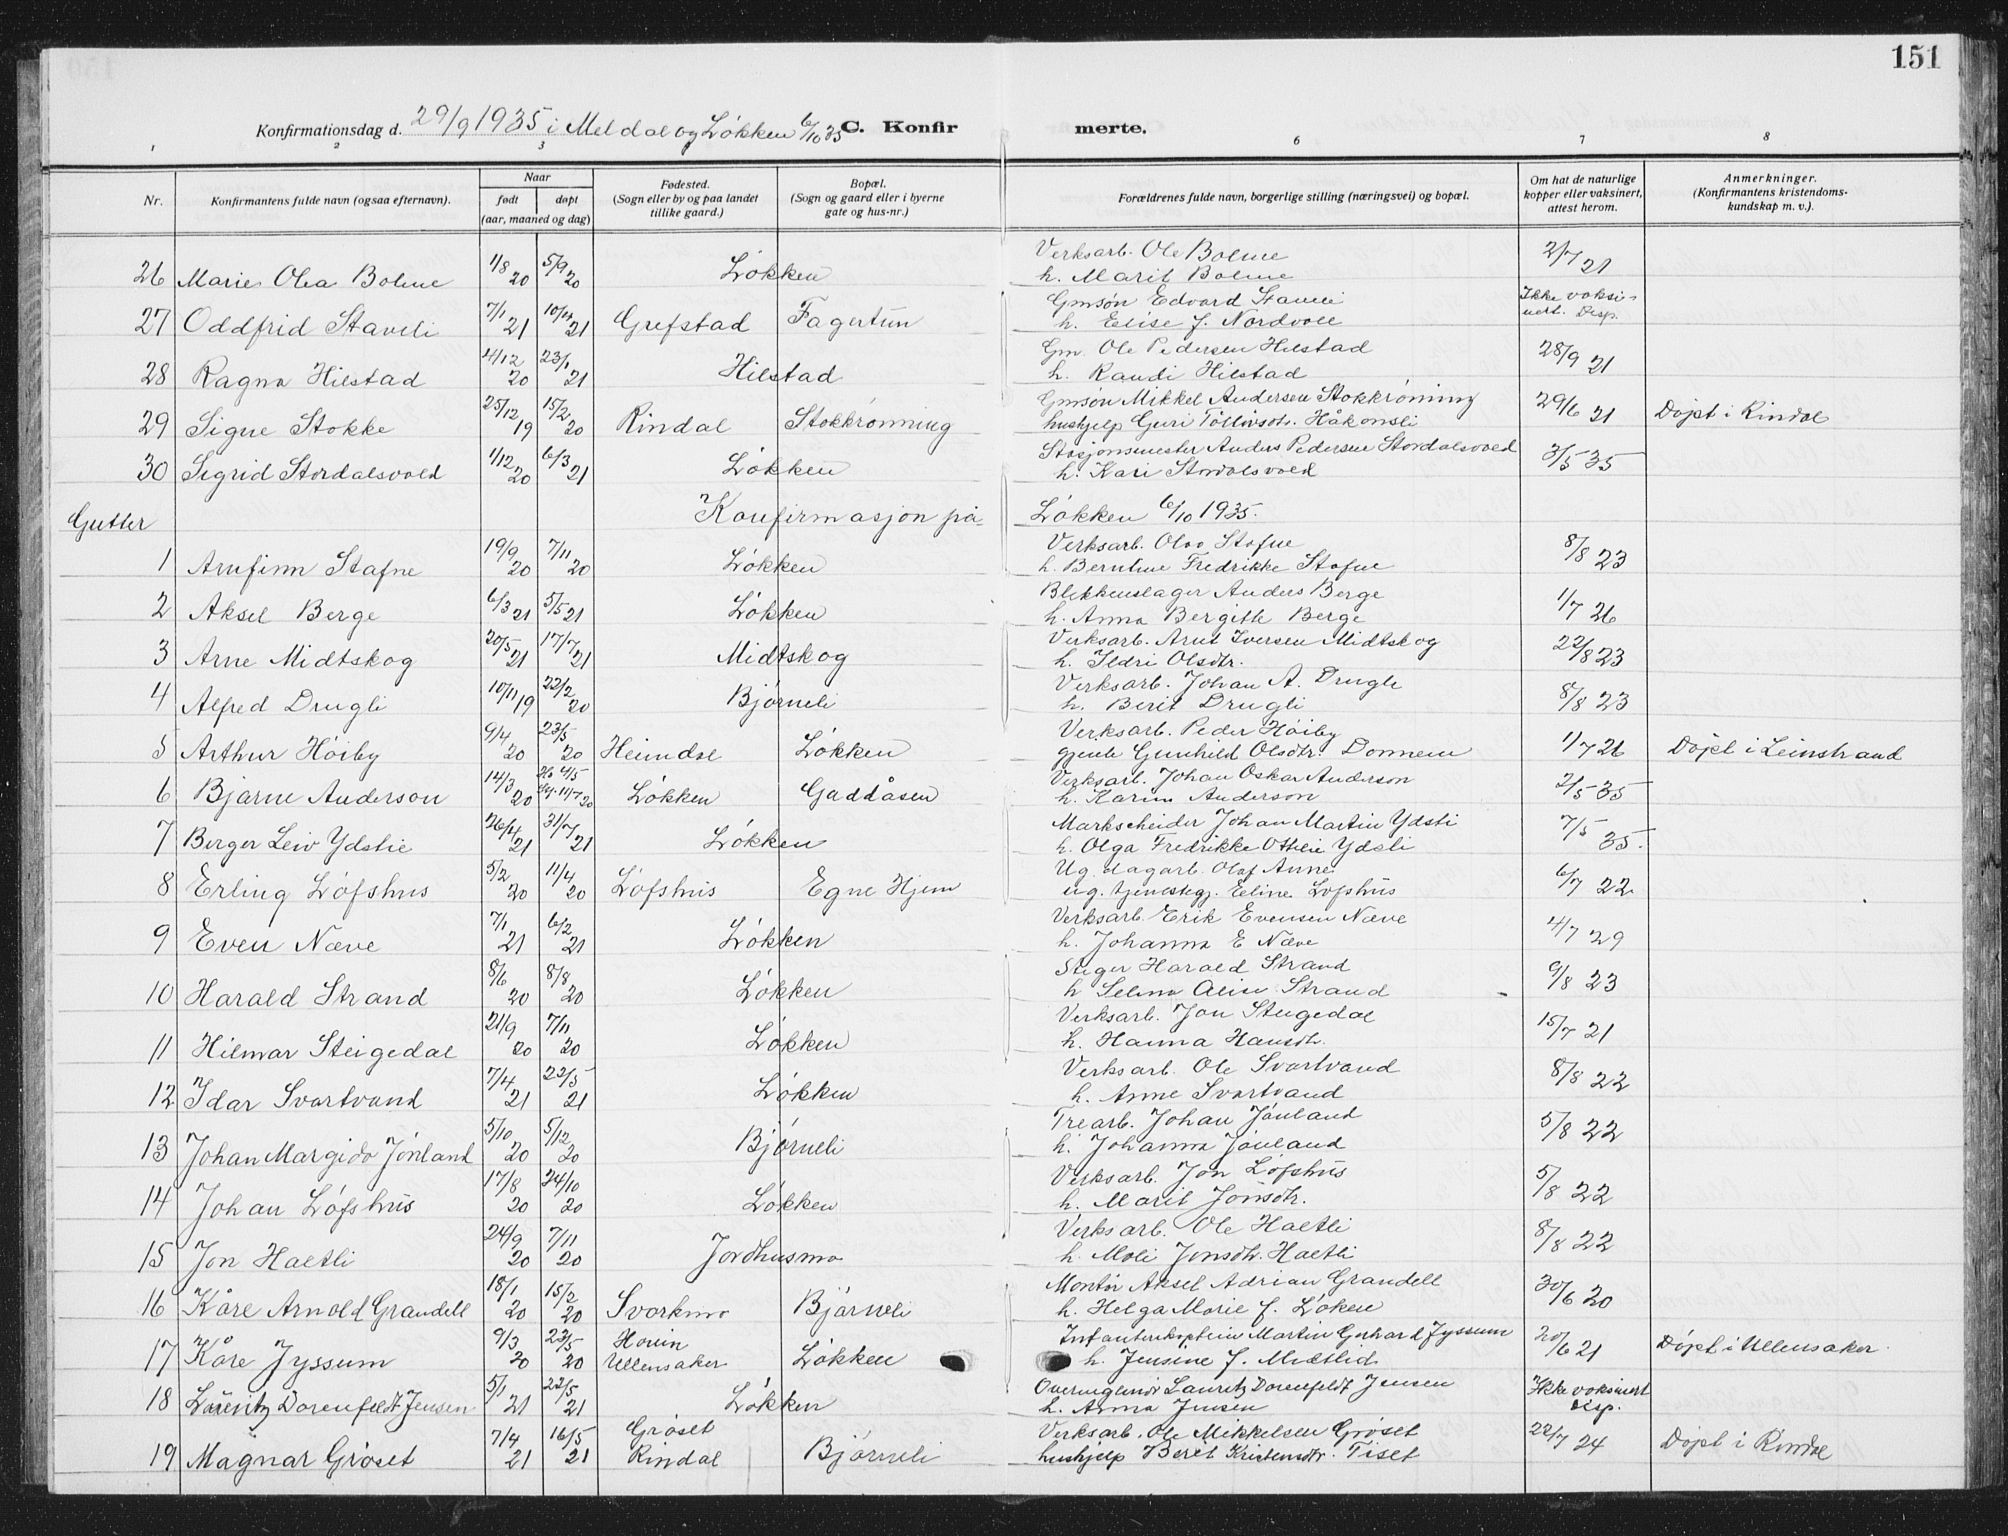 151
Konfirmationsdag d. 29/9 1935 i Meldal og Løkken 6/10 35 C. Konfirmerte.
1 2 3 6 7 8
Nr. Konfirmantens fulde navn (ogsaa efternavn). Naar født døpt (aar, maaned og dag) Fødested. (Sogn eller by og paa landet tillike gaard.) Bopæl. (Sogn og gaard eller i byerne gate og hus-nr.) Forældrenes fulde navn, borgerlige stilling (næringsvei) og bopæl. Om hat de naturlige kopper eller vaksinert, attest herom. Anmerkninger. (Konfirmantens kristendomskundskap m. v.).
26 Marie Olea Bolme 1/8 20 5/9 20 Løkken Verksarb. Ole Bolme h. Marit Bolme 2/7 21
27 Oddfrid Staveli 7/1 21 21 Grefstad Fagertun Gmsøn Edvard Staveli h. Elise f. Nordvoll Ikke vaksinert. Disp.
28 Ragna Hilstad 4/12 20 23/1 21 Hilstad Gm. Ole Pedersen Hilstad h. Randi Hilstad 28/9 21
29 Signe Stokke 25/12 19 15/2 20 Rindal Stokkrønning Gmsøn Mikkel Andersen Stokkrønning hushjelp Guri Tollivsdtr. Håkonsli 29/6 21 Døpt i Rindal
30 Sigrid Stordalsvold 1/12 20 6/3 21 Løkken Stasjonsmester Anders Pedersen Stordalsvold h. Kari Stordalsvold 3/5 35
Gutter Konfirmasjon på Løkken 6/10 1935.
1 Arnfinn Stafne 19/9 20 7/11 20 Løkken Verksarb. Olav Stafne h. Berntine Fredrikke Stafne 8/8 23
2 Aksel Berge 6/3 21 5/5 21 Løkken Blekkenslager Anders Berge h. Anna Bergitte Berge 1/7 26
3 Arne Midtskog 20/5 21 17/7 21 Midtskog Verksarb. Arnt Iversen Midtskog h. Ildri Olsdtr. 22/8 23
4 Alfred Drugli 10/11 19 22/2 20 Bjørneli Verksarb. Johan A. Drugli h. Berit Drugli 8/8 23
5 Arthur Høiby 9/4 20 23/5 20 Heimdal Løkken Verksarb. Peder Høiby gjente Gunhild Olsdtr. Donnem 1/7 26 Døpt i Leinstrand
6 Bjarne Anderson 14/3 20 4/5 11/7 20 Løkken Gaddåsen Verksarb. Johan Oskar Anderson h. Karin Anderson 2/5 35
7 Berger Leiv Ydstie 26/4 21 31/7 21 Løkken Markscheider Johan Martin Ydsti h. Olga Fredrikke Ottilie Ydsti 7/5 35.
8 Erling Løfshus 5/2 20 11/4 20 Løfshus Egne Hjem Ug. dagarb. Olaf Anne ug. tjenestegj. Eline Lofshus 6/7 22
9 Even Næve 7/1 21 6/2 21 Løkken Verksarb. Erik Evensen Næve h. Johanna E Næve 4/7 29
10 Harald Strand 8/6 20 8/8 20 Løkken Stiger Harald Strand h Selma Alise Strand 9/8 23
11 Hilmar Steigedal 21/9 20 7/11 20 Løkken Verksarb. Jon Steigedal h. Hanna Hansdtr. 15/7 21
12 Idar Svartvand 7/4 21 22/5 21 Løkken Verksarb. Ole Svartvand h. Anne Svartvand 8/8 22
13 Johan Margido Jønland 5/10 20 5/12 20 Bjørneli Trearb. Johan Jønland h. Johanna Jønland 5/8 22
14 Johan Løfshus 17/8 20 24/10 20 Løkken Verksarb. Jon Løfshus h. Marit Jonsdtr. 5/8 22
15 Jon Haltli 24/9 20 7/11 20 Jordhusmo Verksarb. Ole Haltli h. Mali Jonsdtr. Haltli 8/8 22
16 Kåre Arnold Grandell 18/1 20 15/2 20 Svorkmo Bjørneli Montør Aksel Adrian Grandell h. Helga Marie f. Løken 30/6 20
17 Kåre Jyssum 9/3 20 23/5 20 Hovin Ullensaker Løkken Infanterikaptein Martin Gerhard Jyssum h. Jensine f. Midtlid 20/6 21 Døpt i Ullensaker.
18 Lauritz Dorenfeldt Jensen 5/1 21 22/5 21 Løkken Overingeniør Lauritz Dorenfeldt Jensen h. Anna Jensen Ikke vaksinert disp.
19 Magnar Grøset 7/4 21 16/5 21 Grøset Rindal Bjørneli Verksarb. Ole Mikkelsen Grøset hushjelp Berit Kristensdtr. Tiset 22/7 24 Døpt i Rindal